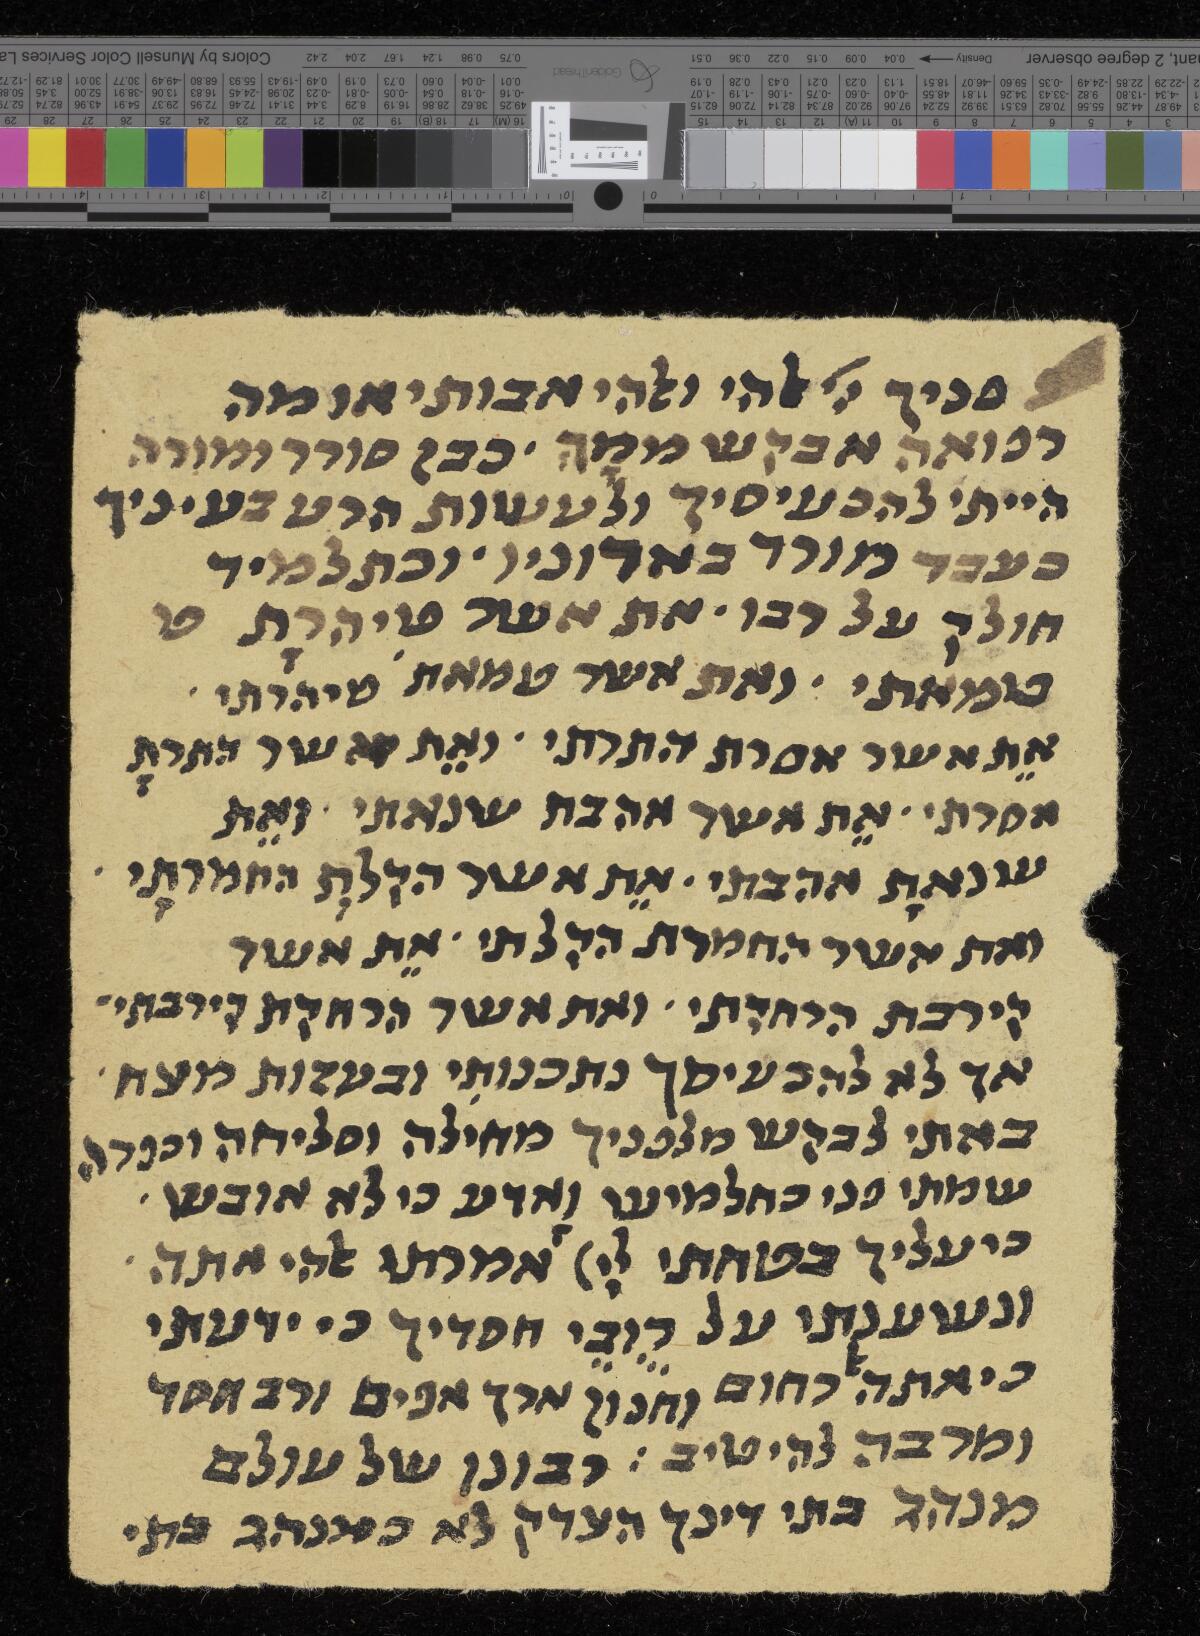 פניך ייי אלהי ואלהי אבותי או מה
רפואה אבקש ממך · כבן סורר ומורה
הייתי להכעיסיך ולעשות הרע בעיניך
כעבד מורד באדוניו · וכתלמיד
חולק על רבו · את אשר טיהרת ט
טומאתי · ואת אשר טמאת טיהרתי ·
את אשר אסרת התרתי · ואת אשר התרת
אסרתי · את אשר אהבת שנאתי · ואת
שנאת אהבתי · את אשר הקלת החמרתי ·
ואת אשר החמרת הקלתי · את אשר
קירבת הרחקתי · ואת אשר הרחקת קירבתי ·
אך לא להכעיסך נתכנותי ובעזות מצח ·
באתי לבקש מלפניך מחילה וסליחה וכפרה
שמתי פני כחלמיש ואדע כי לא אובש ·
כי עליך בטחתי ייי אמרתי אלהי אתה ·
ונשענתי על רובי חסדיך כי ידעתי
כי אתה אל רחום וחנון ארך אפים ורב חסד
ומרבה להיטיב : רבונו של עולם
מנהג בתי דינך הצדק לא כמנהג בתי